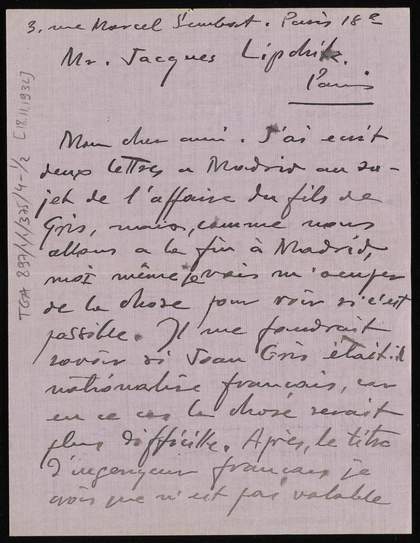 3, rue Marcel Sembat. Paris 18e
Mr. Jacques Lipchitz.
Paris
Mon cher ami. J'ai ecrit
deux lettres a Madrid au su-
jet de l'affaire du fils de
Gris, mais, comme nous
allons a la fin à Madrid,
moi même je vais m'ocuper
de la chose pour voir si c'est
possible. Il me faudrait
savoir si Joan Gris était-il
nationalisé français, car
en ce cas la chose serait
plus difficille. Après, le titre
d'ingenyeur français je
crois que n'est pas valable
TGA 897/1/1/375/4-1/2 [18.11.1932]